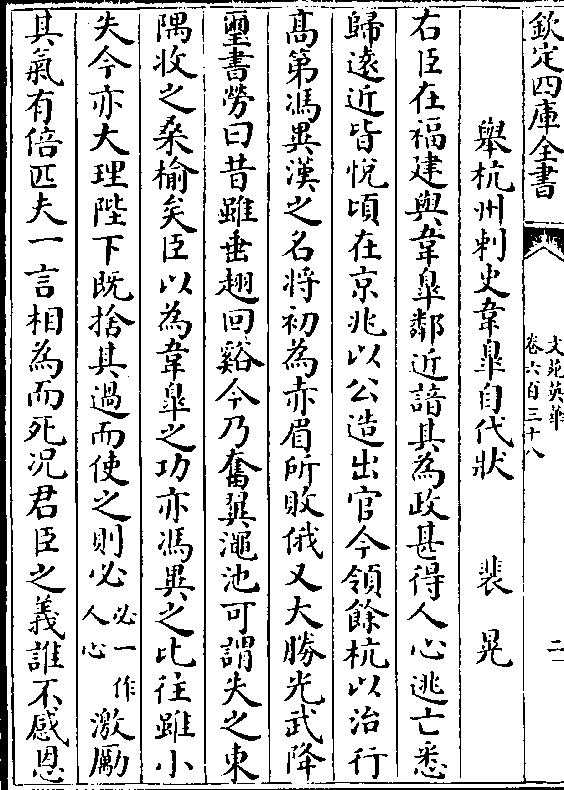 欽定四庫全書
文苑英華
卷六百三十八
二
舉杭州刺史韋臯自代狀 裴晃
右臣在福建與韋臯鄰近諳其為政甚得人心逃亡悉
歸遠近皆悅頃在京兆以公造出官今領餘杭以治行
高第馮異漢之名將初為赤眉所敗俄又大勝光武降
璽書勞曰昔雖垂翅回谿今乃奮翼澠池可謂失之東
隅收之桑榆矣臣以為韋臯之功亦馮異之比往雖小
失今亦大理陛下既捨其過而使之則必必一作人心激厲
其氣有倍匹夫一言相為而死況君臣之義誰不感恩